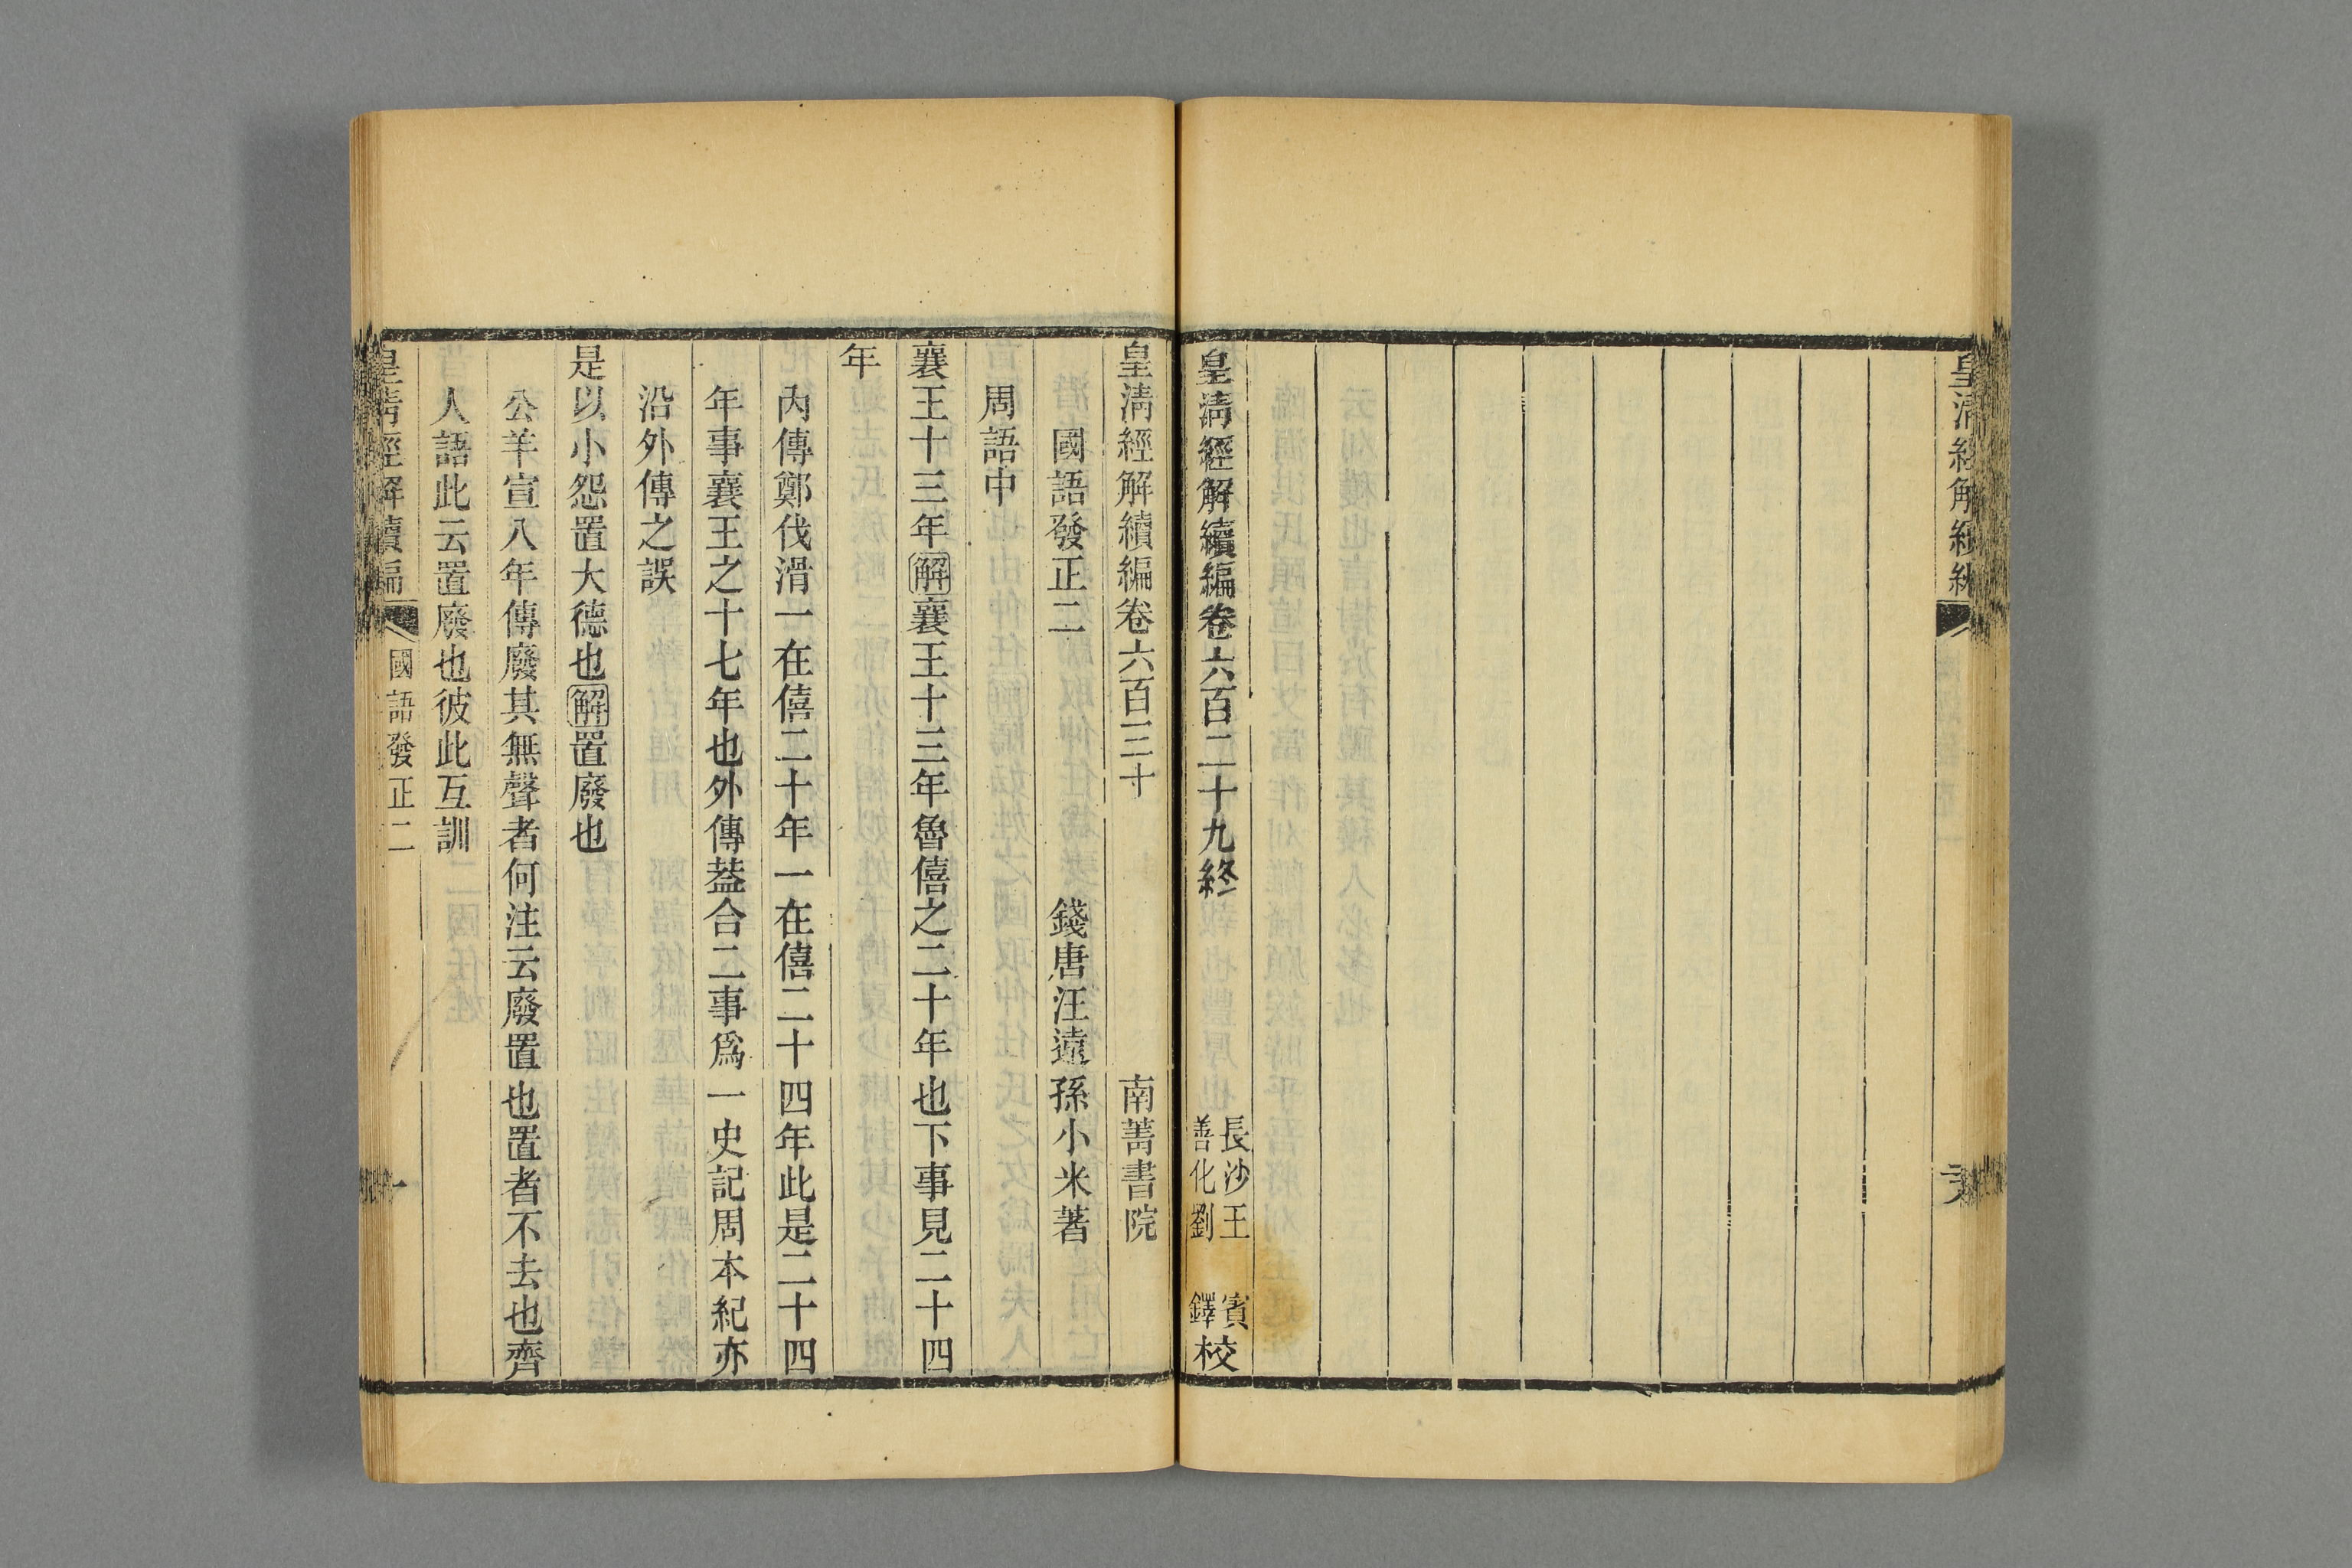 皇清經解續編
皇清經解續編卷六百二十九終
長沙王
賓
善化劉
鐸
校
皇清經解續編卷六百三十
南菁書院
國語發正二
錢唐汪遠孫小米著
周語中
襄王十三年解襄王十三年魯僖之二十年也下事見二十四
年
內傳鄭伐滑一在僖二十年一在僖二十四年此是二十四
年事襄王之十七年也外傳葢合二事爲一史記周本紀亦
沿外傳之誤
是以小怨置大德也解置廢也
公羊宣八年傳廢其無聲者何注云廢置也置者不去也齊
人語此云置廢也彼此互訓
皇清經解續編
國語發正二
一